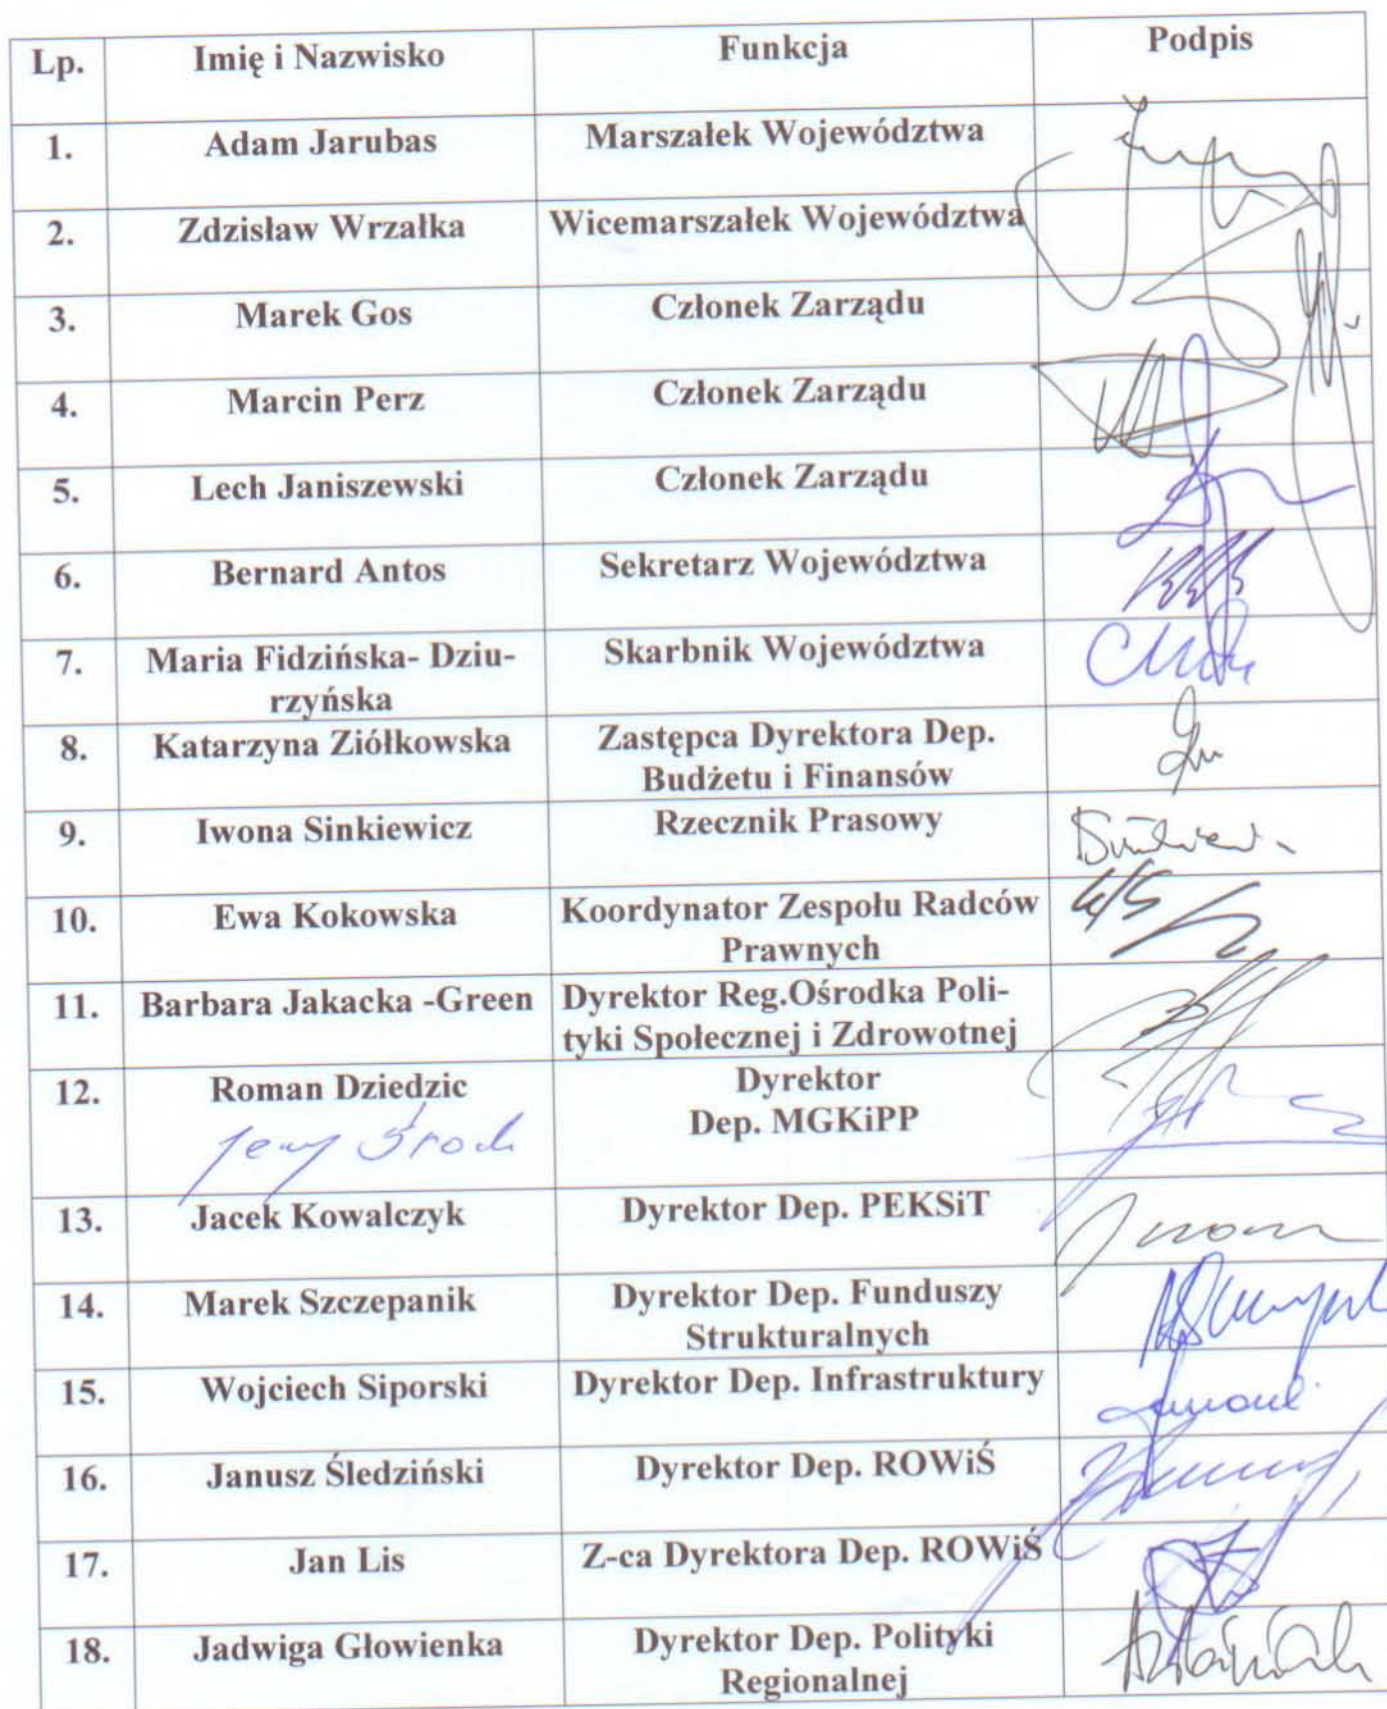 Lp. Imię i Nazwisko Funkcja Podpis
1. Adam Jarubas Marszałek Województwa
2. Zdzisław Wrzałka Wicemarszałek Województwa
3. Marek Gos Członek Zarządu
4. Marcin Perz Członek Zarządu
5. Lech Janiszewski Członek Zarządu
6. Bernard Antos Sekretarz Województwa
7. Maria Fidzińska- Dziu- Skarbnik Województwa
rzyńska
8. Katarzyna Ziółkowska Zastępca Dyrektora Dep.
Budżetu i Finansów
9. Iwona Sinkiewicz Rzecznik Prasowy
10. Ewa Kokowska Koordynator Zespołu Radców
Prawnych
11. Barbara Jakacka -Green Dyrektor Reg.Ośrodka Poli-
tyki Społecznej i Zdrowotnej
12. Roman Dziedzic Dyrektor
Dep. MGKiPP
13. Jacek Kowalczyk Dyrektor Dep. PEKSiT
14. Marek Szczepanik Dyrektor Dep. Funduszy
Strukturalnych
15. Wojciech Siporski Dyrektor Dep. Infrastruktury
16. Janusz Śledziński Dyrektor Dep. ROWiŚ
17. Jan Lis Z-ca Dyrektora Dep. ROWiŚ
18. Jadwiga Głowienka Dyrektor Dep. Polityki
Regionalnej